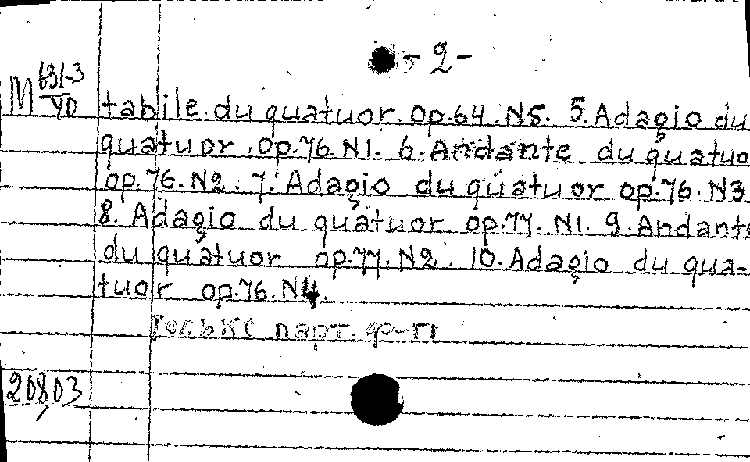 - 2 -
М 631-3
УО
tabile. du quatuor. op.64. N5. 5. Adagio du
quatuor. op.76. N1. 6. Andante du quatuo
op.76. N2. 7. Adagio du quatuor op.76. N3
8. Adagio du quatuor op.77. N1. 9. Andante
du quatuor op.77. N2. 10. Adagio du qua-
tuor op.76. N4.
Только парт. ф-п
20803